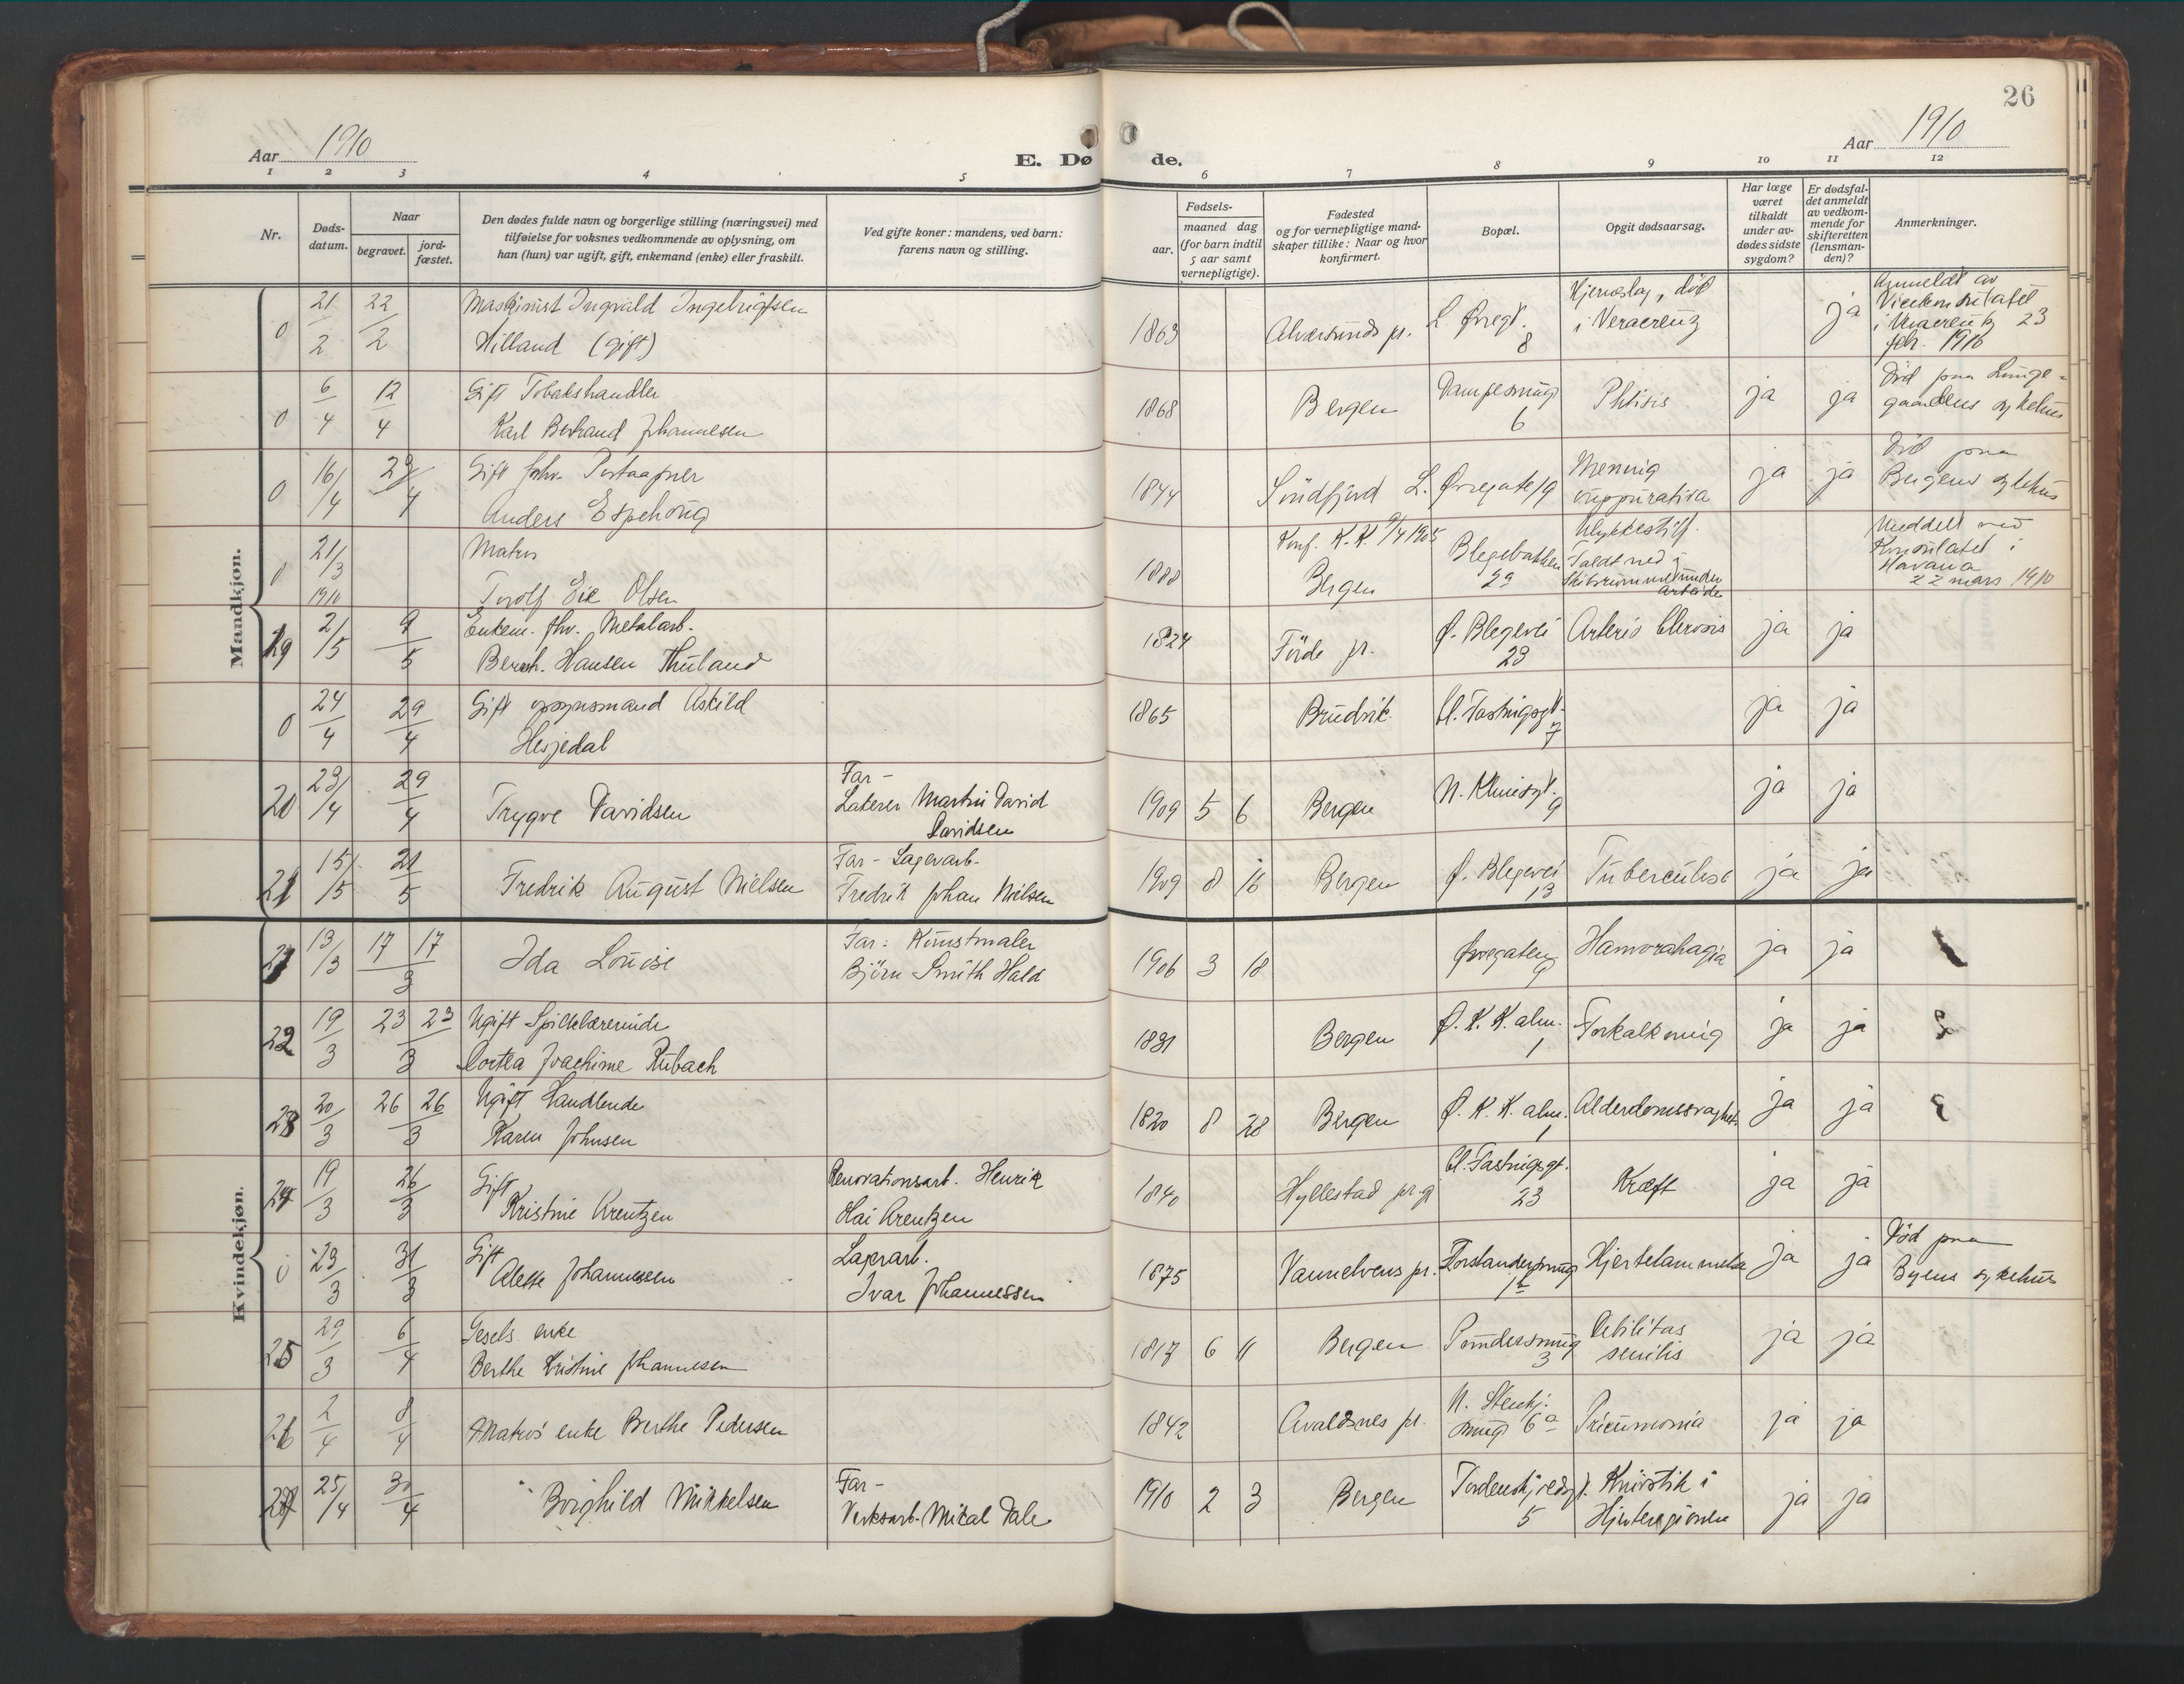 26
Aar 1910
E. Dø de.
Aar 1910
1 2 3 4 5 6 7 8 9 10 11 12
Nr.
Døds-
datum.
Naar
begravet.
jord-
fæstet.
Den dødes fulde navn og borgerlige stilling (næringsvei) med
tilføielse for voksnes vedkommende av oplysning, om
han (hun) var ugift, gift, enkemand (enke) eller fraskilt.
Ved gifte koner: mandens, ved barn:
farens navn og stilling.
Fødsels-
aar.
maaned dag
(for barn indtil
5 aar samt
vernepligtige).
Fødested
og for vernepligtige mand-
skaper tillike: Naar og hvor
konfirmert.
Bopæl.
Opgit dødsaarsag.
Har læge
været
tilkaldt
under av-
dødes sidste
sygdom?
Er dødsfal-
det anmeldt
av vedkom-
mende for
skifteretten
(lensman-
den)?
Anmerkninger.
Mandkjøn.
0 21/2 22/2 Maskinist Ingvald Ingebrigtsen
Hilland (gift)
1863 Alversunds pr. L. Øvregt. 8
Hjerneslag, død
i Veracruz
ja
Anmeldt av
Vicekonsulatet
i Veracruz 23
febr. 1910
0 6/4 12/4 Gift Tobakshandler
Karl Bertrand Johannesen
1868 Bergen 6 Phtisis ja ja
Död paa Lunge-
gaardens sykehus
0 16/4 23/4 Gift fhv. Postaapner
Anders Espehoug
1844 Söndfjord L. Øvregate 19
ja ja
Död paa
Bergens sykehus
0 21/3 1910 Matros
Torolf Eie Olsen
1888 Konf. K. K. 9/4 1905
Bergen
Blegebakken
29
Ulykkestilf.
Faldt ned i
Skibsrummet under
arbeide
Meddelt ved
Konsulatet i
Havana
22 mars 1910
19 2/5 9/5 Enkem. fhv. Metalarb.
Bernh. Hansen Thuland
1824 Förde pr. Ø. Blegevei
23
Arterio Clerosis ja ja
0 24/4 29/4 Gift opsynsmand Askild
Hesjedal
1865 Bruvik Cl. Fastingsgt.
7
ja ja
20 23/4 29/4 Trygve Davidsen
Far -
Martin David
Davidsen
1909 5 6 Bergen 9 ja ja
21 15/5 21/5 Fredrik August Nielsen
Far - Lagerarb.
Fredrik Johan Nielsen
1909 8 16 Bergen Ø. Blegevei
13
Tuberculose ja ja
Kvindekjøn.
21 13/3 17 17/3 Ida Louise
Far: Kunstmaler
Björn Smith Hald
1906 3 18 Øvregaten
9
ja ja
22 19/3 23 23/3 Ugift Spillelærerinde
Dortea Joachime Rubach
1831 Bergen Ø. K. K. alm.
1
Forkalkning ja ja
23 20/3 26 26/3 Ugift Handlende
Karen Johnsen
1820 8 28 Bergen Ø. K. K. alm.
1
Alderdomssvaghet ja ja
24 19/3 26/3 Gift
Kristine Arentzen
Renovationsarb. Henrik
Hai Arentzen
1840 Hyllestad prgj Cl. Fastingsgt.
23
Kræft ja ja
0 23/3 31/3 Gift
Alette Johannessen
Lagerarb.
Ivar Johannessen
1875 Vannelvens pr. Forstandersmug
Hjertelammelse ja ja
Død paa
Byens sykehus
25 29/3 6/4 Gesels enke
Berthe Kristine Johannesen
1817 6 11 Bergen 3
Debilitas
senilis
ja ja
26 2/4 8/4 Matros' enke Berthe Pedersen
1842 Avaldsnes pr. N. Stenkj.
smug 6a
Pneumonia ja ja
27 25/4 30/4 Borghild Mikkelsen
Far -
Verksarb. Mikal Dale
1910 2 3 Bergen Tordenskjoldsgt.
5
Knivstik i
Hjerteregionen
ja ja